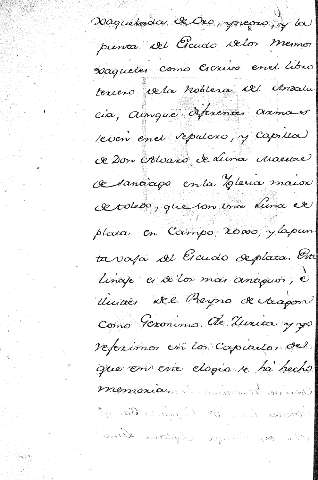 xaquelada de Oro, y negro, y la
punta del Escudo de los mesmos
xaqueles como escrivo en el libro
tercero de la Nobleza del Andalu
cia, aunque diferentes armas se
ven en el sepulcro, y Capilla
de Don Alvaro de Luna Maestre
de Santiago en la Yglesia maior
de toledo, que son una Luna de
plata en Campo roxo, y la pun
ta vaja del Escudo de plata. Este
linaje es de los mas antiguos, è
ilustres del Reyno de Aragon
como Geronimo de Zurita y yo
referimos en los Capitulos de
que en este elogio se há hecho
memoria.